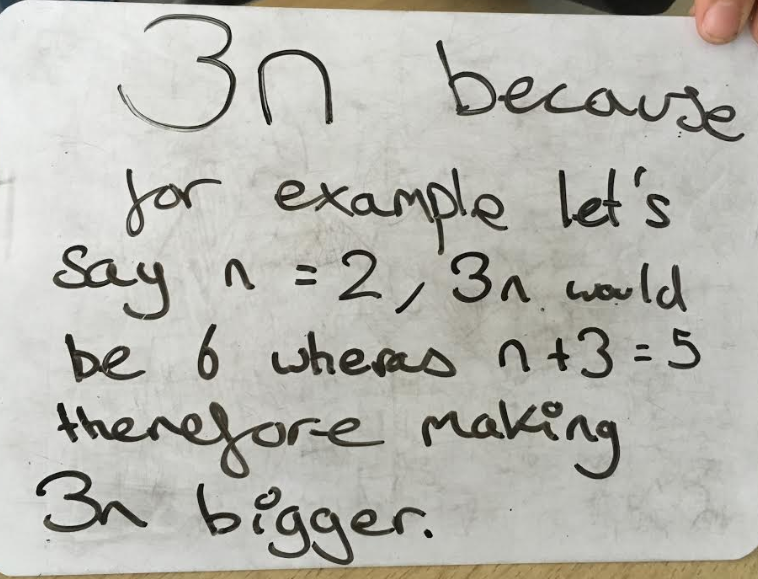 3n because
for example let's
say n = 2, 3n would
be 6 wheras n+3=5
therefore making
3n bigger.